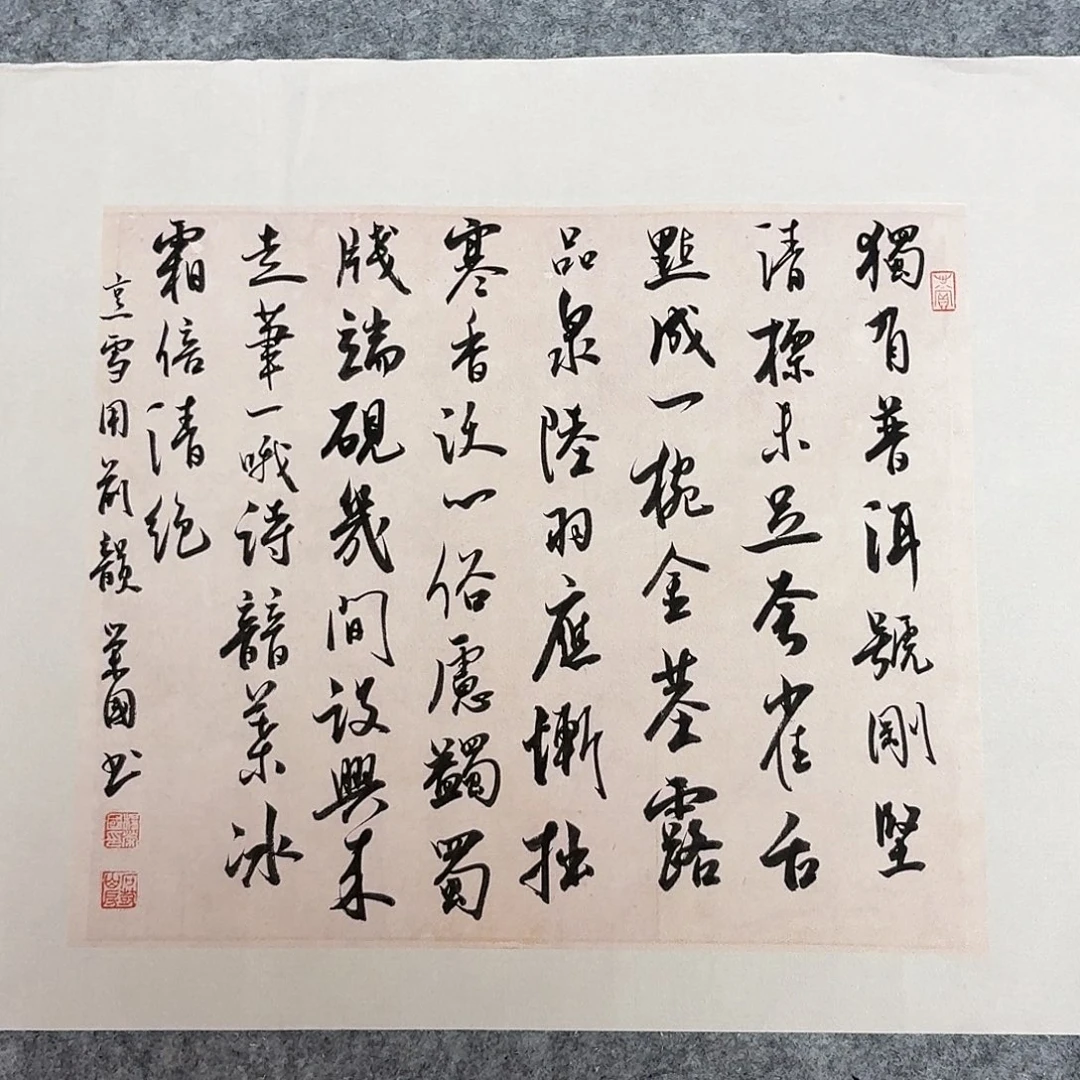 獨有普洱號剛堅
清標未足夸雀舌
點成一椀金莖露
品泉陸羽應慚拙
寒香沒心俗慮蠲蜀
牋端硯幾間設興來
走筆一哦詩韻葉冰
霜倍清絕
烹雪用前韻 榮國书